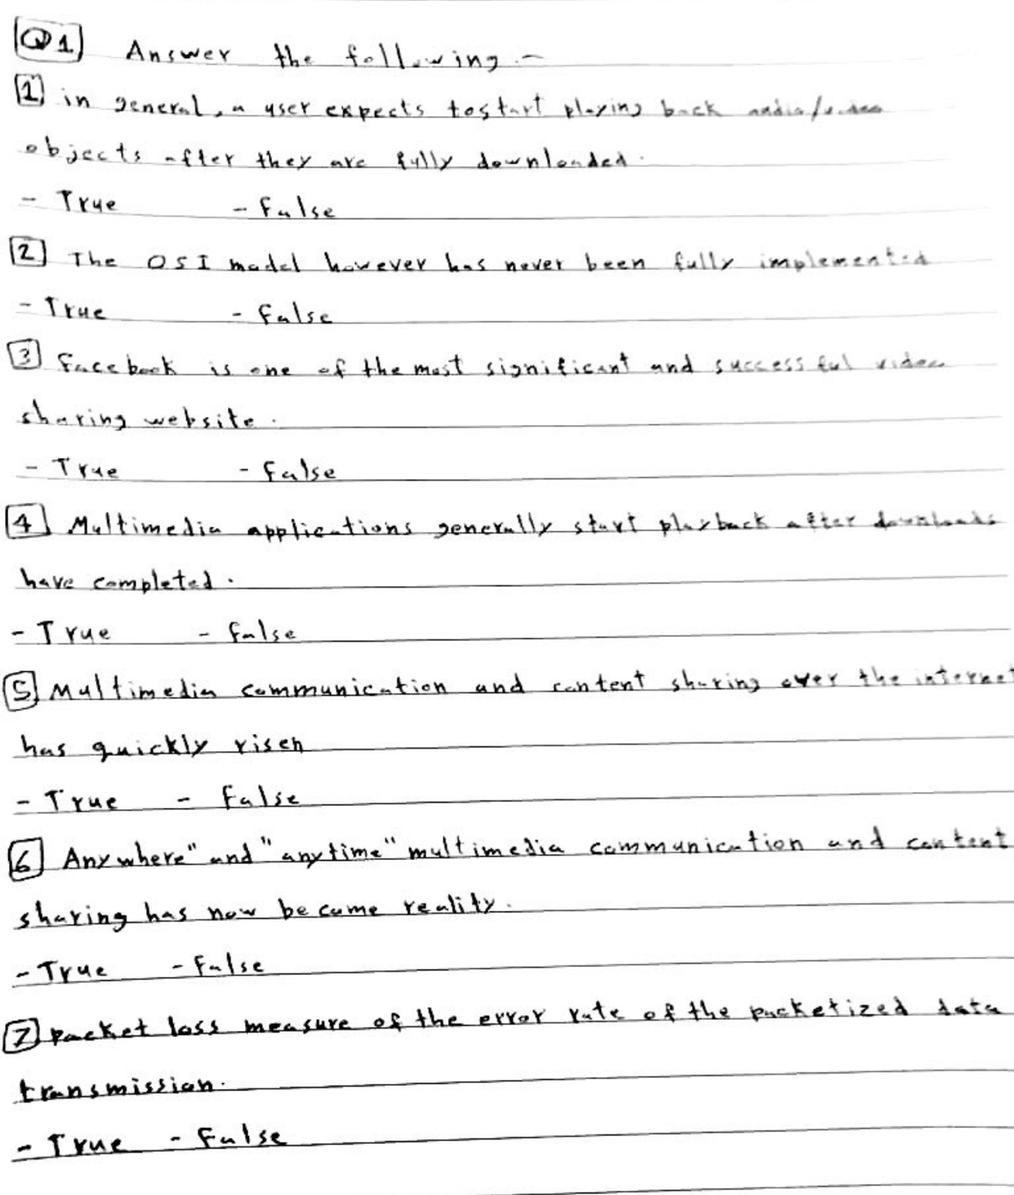 Q1 Answer the following :-
1 in general, a user expects tostart playing back audio/video
objects after they are fully downloaded.
- True - False
2 The OSI model however has never been fully implemented
- True - False
3 Facebook is one of the most significant and successful video
sharing website.
- True - False
4 Multimedia applications generally start playback after downloads
have completed.
- True - False
5 Multimedia communication and content sharing over the internet
has quickly risen
- True - False
6 Anywhere" and "anytime" multimedia communication and content
sharing has now become reality.
- True - False
7 packet loss measure of the error rate of the packetized data
transmission.
- True - False